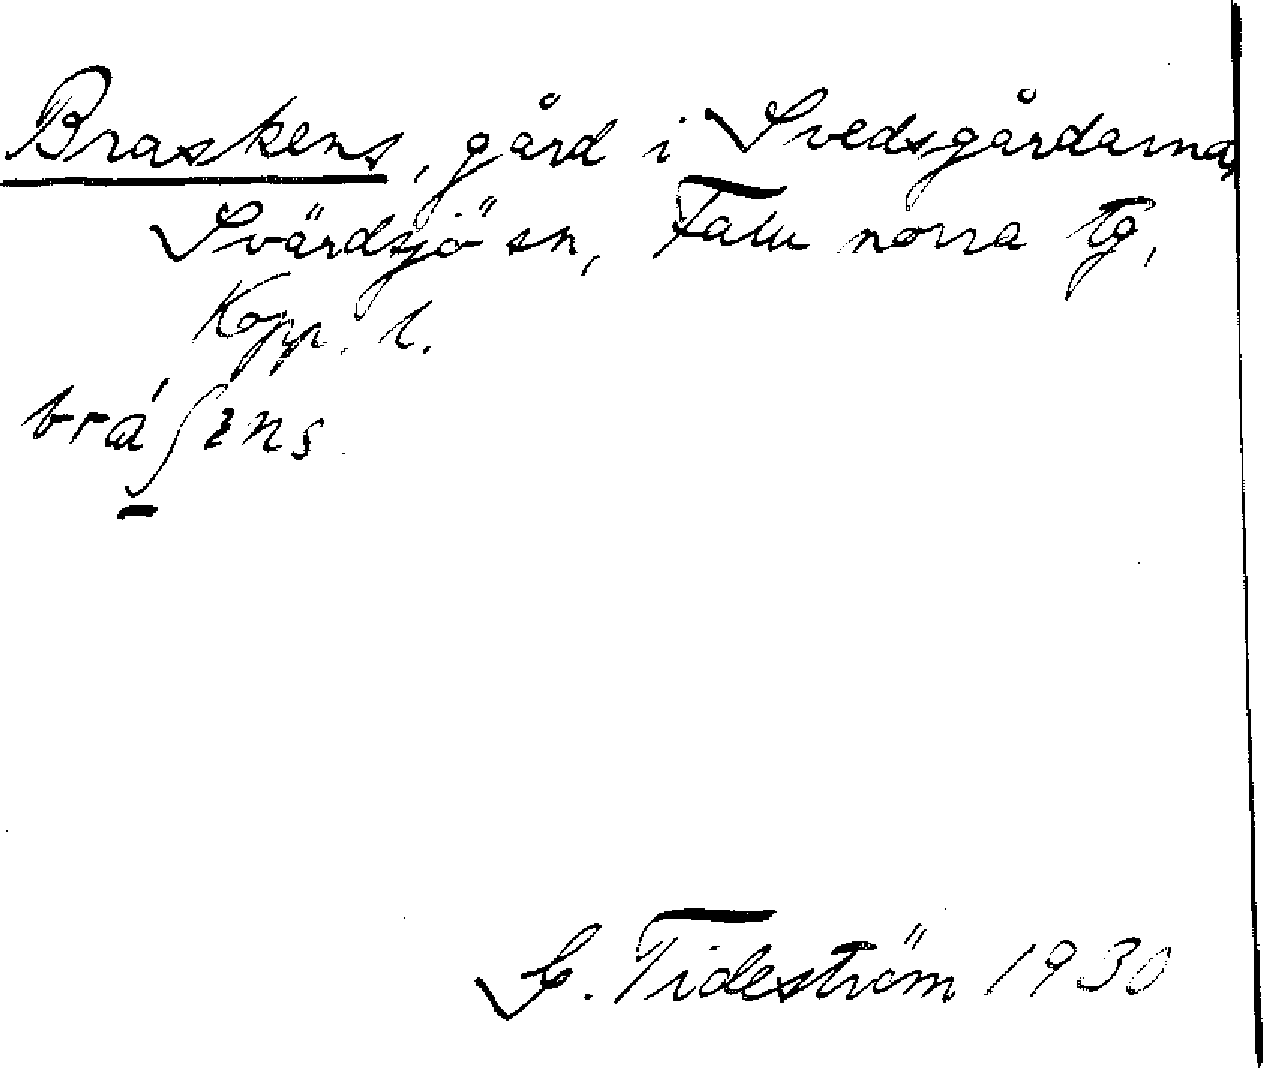 Braskens, gård i Svedsgårdarna,
Svärdsjö sn, Falu norra tg,
Kopp. l.
bráʃens
G. Tideström 1930